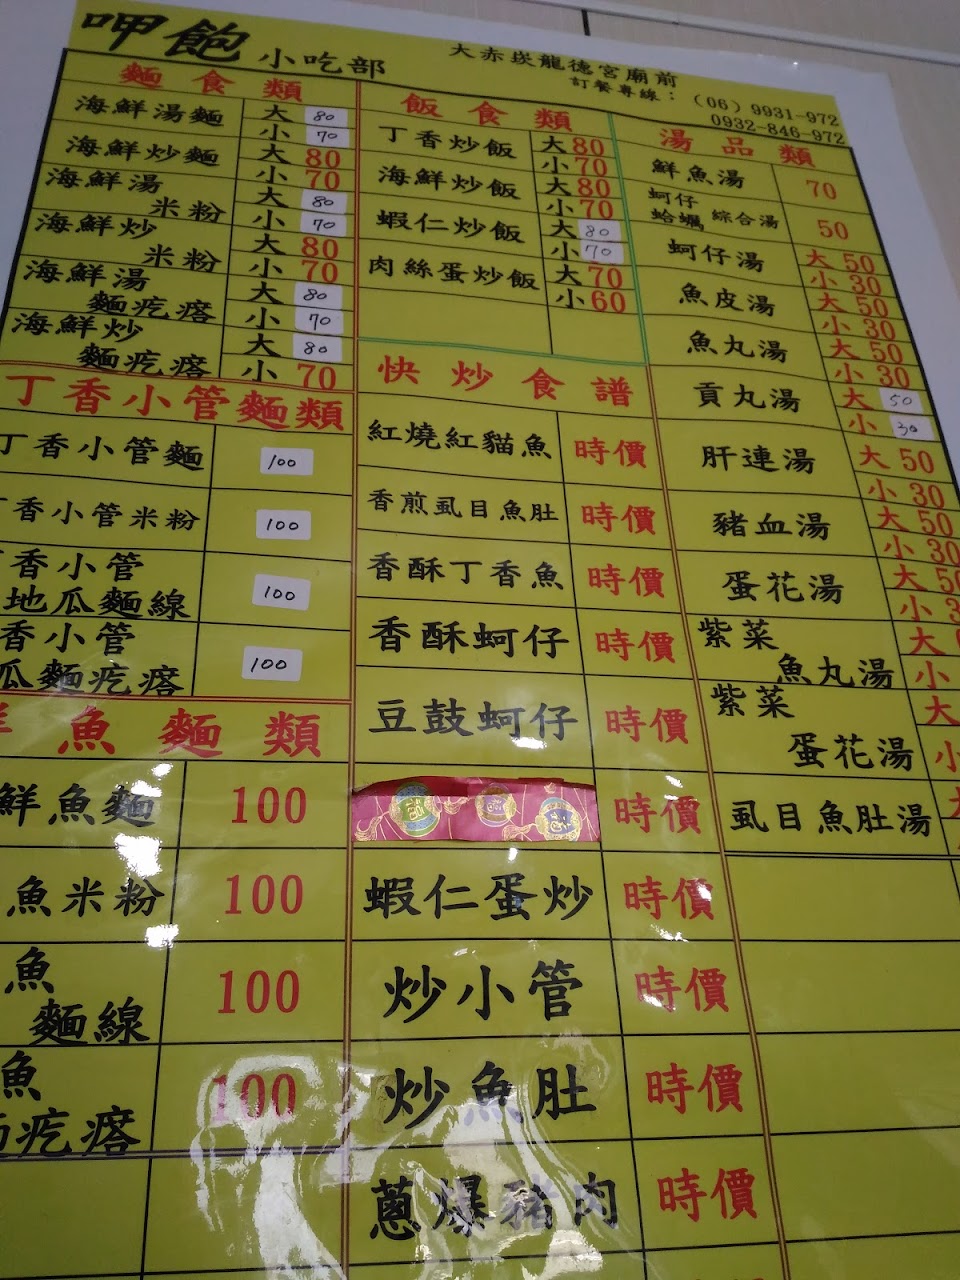 呷飽 小吃部
大赤崁龍德宮廟前
訂餐專線：(06) 9931-972
0932-846-972
麵食類
海鮮湯麵 大 80
小 70
海鮮炒麵 大 80
小 70
海鮮湯米粉 大 80
小 70
海鮮炒米粉 大 80
小 70
海鮮湯麵疙瘩 大 80
小 70
海鮮炒麵疙瘩 大 80
小 70
丁香小管麵類
丁香小管麵 100
丁香小管米粉 100
香小管
地瓜麵線 100
香小管
瓜麵疙瘩 100
魚麵類
鮮魚麵 100
魚米粉 100
魚
麵線 100
魚
疙瘩 100
飯食類
丁香炒飯 大 80
小 70
海鮮炒飯 大 80
小 70
蝦仁炒飯 大 80
小 70
肉絲蛋炒飯 大 70
小 60
快炒食譜
紅燒紅貓魚 時價
香煎虱目魚肚 時價
香酥丁香魚 時價
香酥蚵仔 時價
豆鼓蚵仔 時價
時價
蝦仁蛋炒 時價
炒小管 時價
炒魚肚 時價
蔥爆豬肉 時價
湯品類
鮮魚湯 70
蚵仔
蛤蠣 綜合湯 50
蚵仔湯 大 50
小 30
魚皮湯 大 50
小 30
魚丸湯 大 50
小 30
貢丸湯 大 50
小 30
肝連湯 大 50
小 30
豬血湯 大 50
小 30
蛋花湯 大 50
小 3
紫菜
魚丸湯 大
小
紫菜
蛋花湯 大
小
虱目魚肚湯